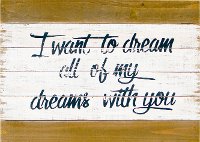 I want to dream
all of my
dreams with you